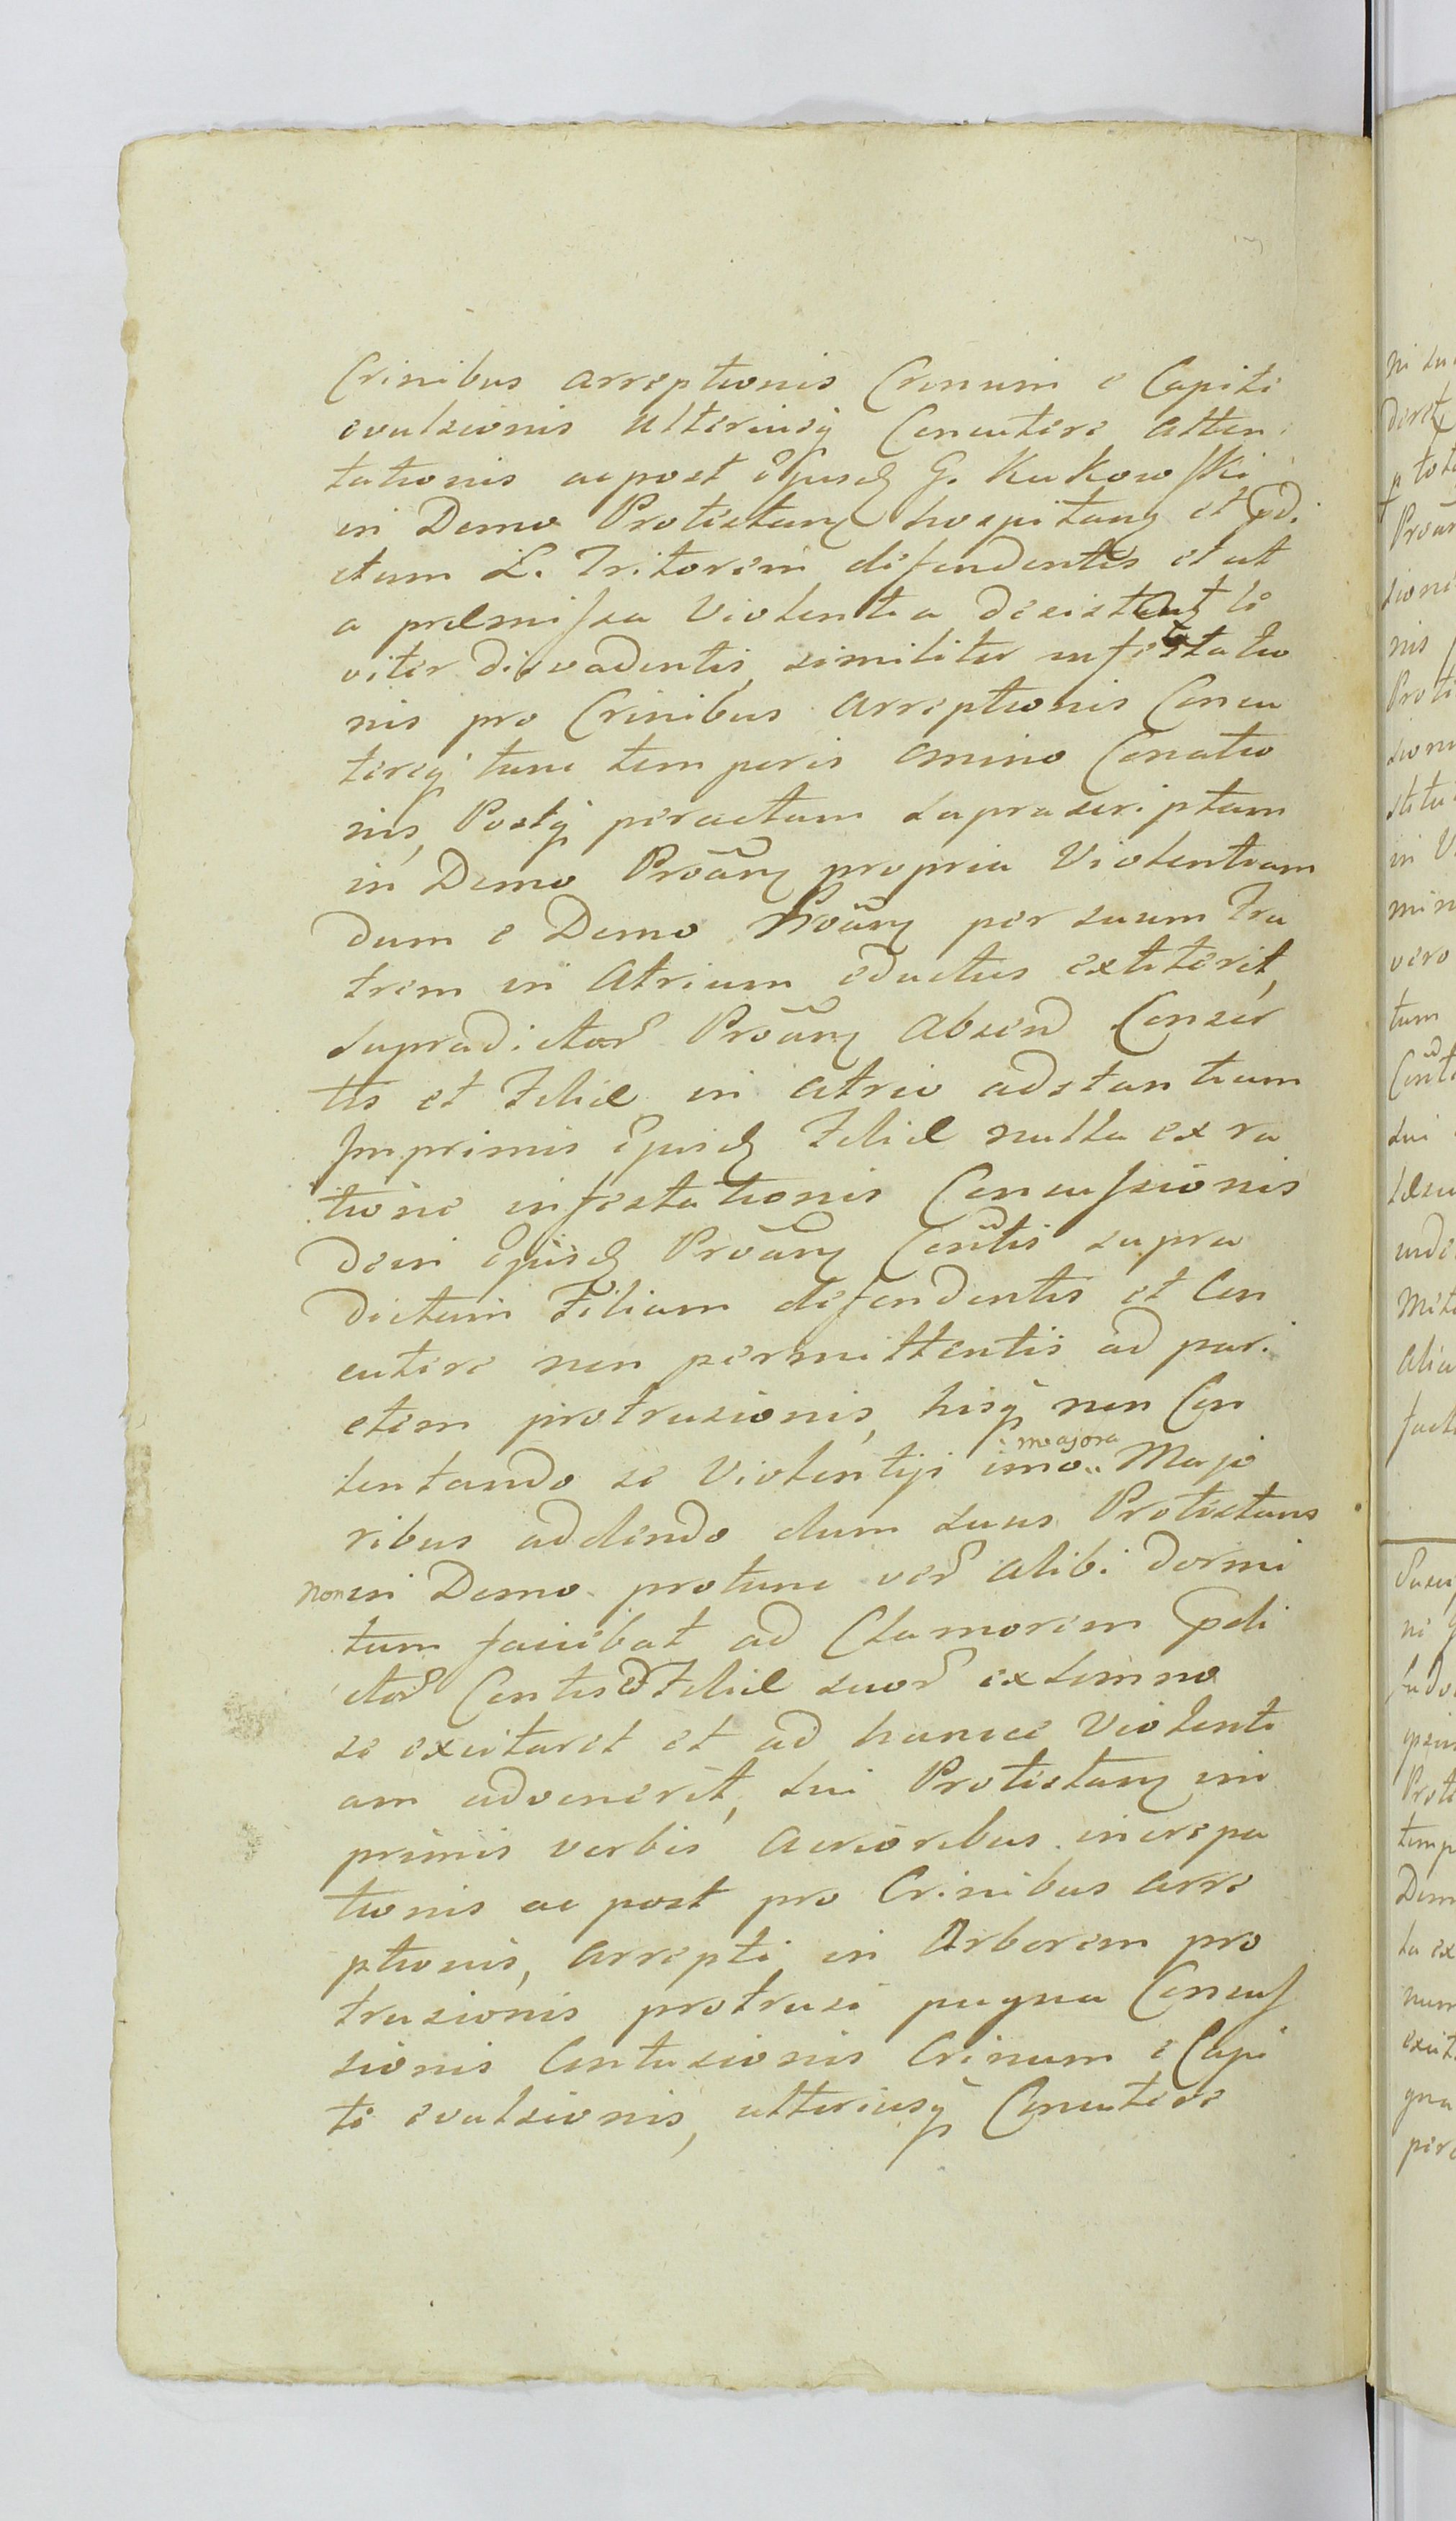 Crinibus arreptionis Crinum e Capite
evulsionis ulteriusq Concutere atten
tationis ac post Ejusd G. Kukowski
in Domo Protestans hospitans et pdi
ctum L. Tritorem defendentis et ut
a præmissa Violentia desistant le
viter disvadentis, similiter infestatio
nis pro Crinibus arreptionis Concu
tereq tunc temporis omino Conatio
nis, Postq peractam supra scriptam
in Domo Proãns propria Violentiam
dum e Domo Proãns per suum Fra
trem in Atrium eductus extiterit,
supradictor Proãns absend Consor
tis et Filiæ in atrio adstantium
Imprimis Ejusd Filiæ nulla ex ra
tione infestationis Concussionis
dein Ejusd Proãns Contis supra
dictam Filiam defendentis et Con
cutere non permittentis ad pari
etem protrusionis, hisq non Con
tentando se Violentijs imo majora Majo
ribus addendo dum suus Protestans
non in Domo protunc ver alibi dormi
tum faciebat ad Clamorem pdi
ctor Contis et Filiæ suor exsomno
se excitaret et ad hancce Violenti
am advenerit, sui Protestans im
primis verbis acrioribus increpa
tionis ac post pro Crinibus arre
ptionis, arrepti in Arborem pro
trusionis protrusi pugna Concus
sionis Contusionis Crinum e Capi
te evulsionis, ulteriusq Concutere